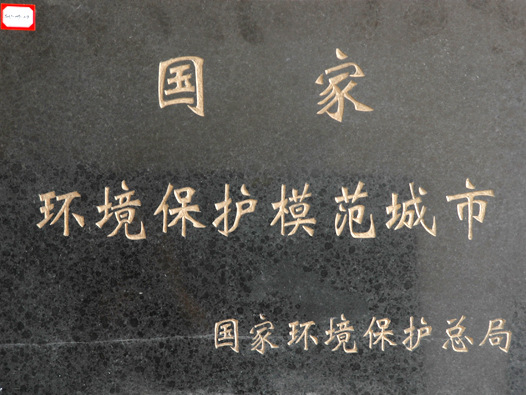 国家
环境保护模范城市
国家环境保护总局